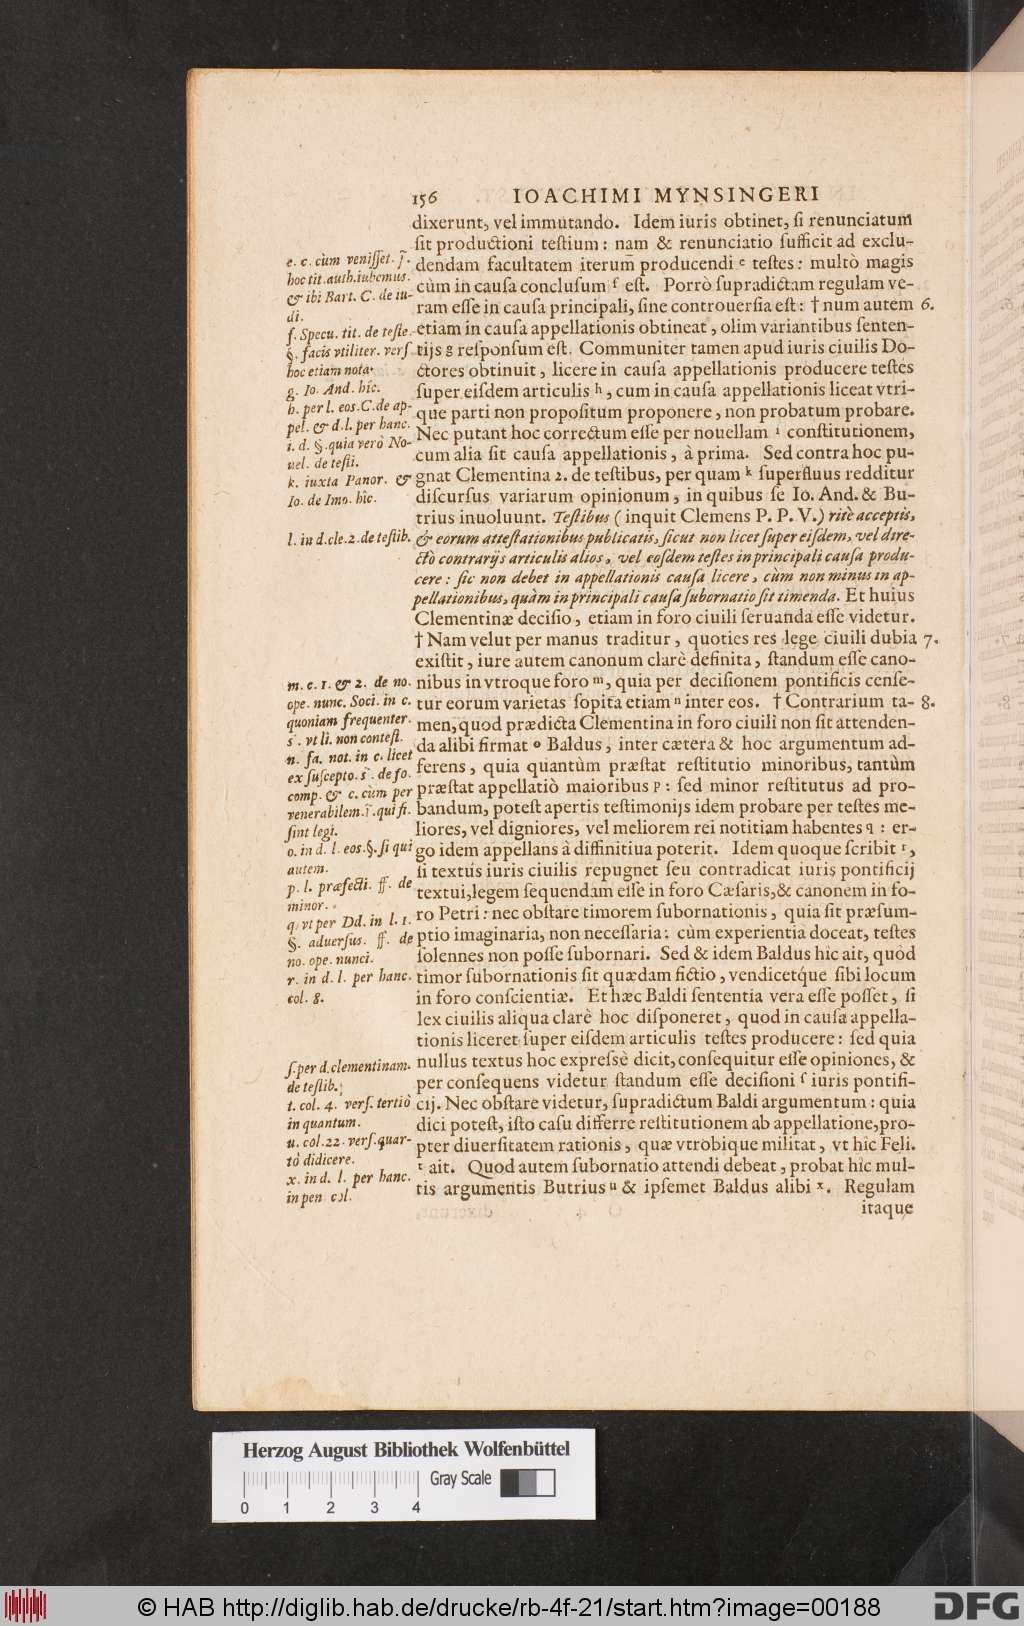 156 IOACHIMI MYNSINGERI
dixerunt, vel immutando. Idem iuris obtinet, ſi renunciatum
ſit productioni teſtium: nam & renunciatio ſufficit ad exclu-
dendam facultatem iterum producendi e teſtes: multò magis
cùm in cauſa concluſum f eſt. Porrò ſupradictam regulam ve-
ram eſſe in cauſa principali, ſine controuerſia eſt: † num autem 6.
etiam in cauſa appellationis obtineat, olim variantibus ſenten-
tijs g reſponſum eſt. Communiter tamen apud iuris ciuilis Do-
ctores obtinuit, licere in cauſa appellationis producere teſtes
ſuper eiſdem articulis h, cum in cauſa appellationis liceat vtri-
que parti non propoſitum proponere, non probatum probare.
Nec putant hoc correctum eſſe per nouellam i conſtitutionem,
cum alia ſit cauſa appellationis, à prima. Sed contra hoc pu-
gnat Clementina 2. de teſtibus, per quam k ſuperfluus redditur
diſcurſus variarum opinionum, in quibus ſe Io. And. & Bu-
trius inuoluunt. Teſtibus (inquit Clemens P. P. V.) ritè acceptis,
& eorum atteſtationibus publicatis, ſicut non licet ſuper eiſdem, vel dire-
ctò contrarijs articulis alios, vel eoſdem teſtes in principali cauſa produ-
cere: ſic non debet in appellationis cauſa licere, cùm non minus in ap-
pellationibus, quàm in principali cauſa ſubornatio ſit timenda. Et huius
Clementinæ deciſio, etiam in foro ciuili ſeruanda eſſe videtur.
† Nam velut per manus traditur, quoties res lege ciuili dubia 7.
exiſtit, iure autem canonum clarè definita, ſtandum eſſe cano-
nibus in vtroque foro m, quia per deciſionem pontificis cenſe-
tur eorum varietas ſopita etiam n inter eos. † Contrarium ta- 8.
men, quod prædicta Clementina in foro ciuili non ſit attenden-
da alibi firmat o Baldus, inter cætera & hoc argumentum ad-
ferens, quia quantùm præſtat reſtitutio minoribus, tantùm
præſtat appellatiò maioribus p: ſed minor reſtitutus ad pro-
bandum, poteſt apertis teſtimonijs idem probare per teſtes me-
liores, vel digniores, vel meliorem rei notitiam habentes q: er-
go idem appellans à diffinitiua poterit. Idem quoque ſcribit r,
ſi textus iuris ciuilis repugnet ſeu contradicat iuris pontificij
textui, legem ſequendam eſſe in foro Cæſaris, & canonem in fo-
ro Petri: nec obſtare timorem ſubornationis, quia ſit præſum-
ptio imaginaria, non neceſſaria: cùm experientia doceat, teſtes
ſolennes non poſſe ſubornari. Sed & idem Baldus hic ait, quòd
timor ſubornationis ſit quædam fictio, vendicetq́ue ſibi locum
in foro conſcientiæ. Et hæc Baldi ſententia vera eſſe poſſet, ſi
lex ciuilis aliqua clarè hoc diſponeret, quod in cauſa appella-
tionis liceret ſuper eiſdem articulis teſtes producere: ſed quia
nullus textus hoc expreſsè dicit, conſequitur eſſe opiniones, &
per conſequens videtur ſtandum eſſe deciſioni ſ iuris pontifi-
cij. Nec obſtare videtur, ſupradictum Baldi argumentum: quia
dici poteſt, iſto caſu differre reſtitutionem ab appellatione, pro-
pter diuerſitatem rationis, quæ vtrobique militat, vt hîc Feli.
t ait. Quod autem ſubornatio attendi debeat, probat hîc mul-
tis argumentis Butrius u & ipſemet Baldus alibi x. Regulam
itaque
e. c. cùm veniſſet. j̃.
hoc tit. auth. iubemus.
& ibi Bart. C. de iu-
di.
f. Specu. tit. de teſte.
§. facis vtiliter. verſ
hoc etiam nota.
g. Io. And. hîc.
h. per l. eos. C. de ap-
pel. & d. l. per hanc.
i. d. §. quia verò No-
uel. de teſti.
k. iuxta Panor. &
Io. de Imo. hîc.
l. in d. cle. 2. de teſtib.
m. c. 1. & 2. de no.
ope. nunc. Soci. in c.
quoniam frequenter.
§. vt li. non conteſt.
n. fa. not. in c. licet
ex ſuſcepto. s̃. de fo.
comp. & c. cùm per
venerabilem. j̃. qui fi.
ſint legi.
o. in d. l. eos. §. ſi qui
autem.
p. l. præfecti. ff. de
minor.
q. vt per Dd. in l. 1.
§. aduerſus. ff. de
no. ope. nunci.
r. in d. l. per hanc.
col. 8.
ſ. per d. clementinam.
de teſtib.
t. col. 4. verſ. tertiò
in quantum.
u. col. 22. verſ. quar-
tò didicere.
x. in d. l. per hanc.
in pen col.
Herzog August Bibliothek Wolfenbüttel
Gray Scale
0 1 2 3 4
© HAB http://diglib.hab.de/drucke/rb-4f-21/start.htm?image=00188
DFG